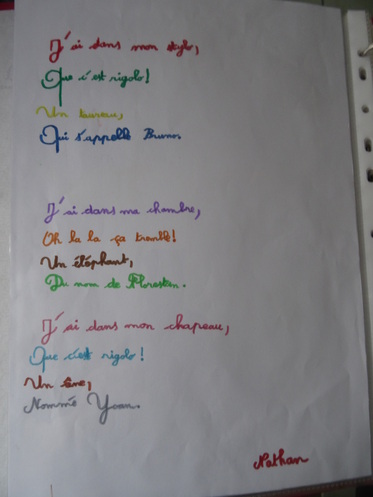 J'ai dans mon stylo,
Que c'est rigolo!
Un taureau,
Qui s'appelle Bruno.
J'ai dans ma chambre,
Oh la la ça tremble!
Un éléphant,
Du nom de Florestan.
J'ai dans mon chapeau,
Que c'est rigolo!
Un âne,
Nommé Yoan.
Nathan